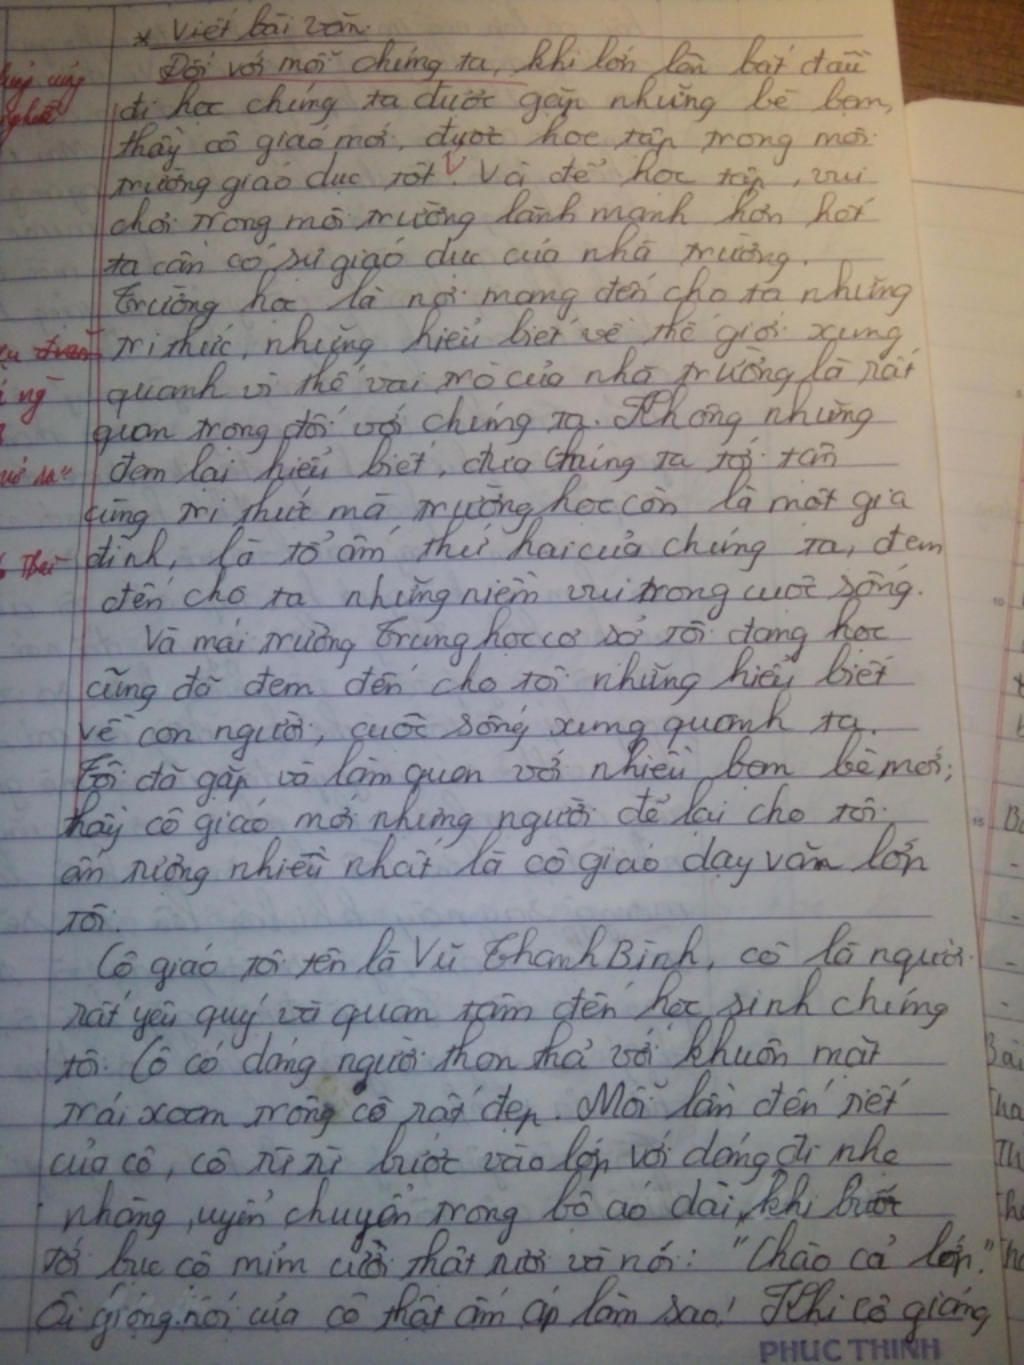 * Viết bài văn.
Đối với mỗi chúng ta, khi lớn lên bắt đầu
đi học chúng ta được gặp những bè bạn,
thầy cô giáo mới, được học tập trong môi
trường giáo dục tốt. Và để học tập, vui
chơi trong môi trường lành mạnh hơn hết
ta cần có sự giáo dục của nhà trường.
Trường học là nơi mang đến cho ta những
tri thức, những hiểu biết về thế giới xung
quanh vì thế vai trò của nhà trường là rất
quan trọng đối với chúng ta. Không những
đem lại hiểu biết, đưa chúng ta tới tận
cùng tri thức mà trường học còn là một gia
đình, là tổ ấm thứ hai của chúng ta, đem
đến cho ta những niềm vui trong cuộc sống.
Và mái trường Trung học cơ sở tôi đang học
cũng đã đem đến cho tôi những hiểu biết
về con người, cuộc sống xung quanh ta.
Tôi đã gặp và làm quen với nhiều bạn bè mới;
thầy cô giáo mới nhưng người để lại cho tôi
ấn tượng nhiều nhất là cô giáo dạy văn lớp
tôi.
Cô giáo tôi tên là Vũ Thanh Bình, cô là người
rất yêu quý và quan tâm đến học sinh chúng
tôi. Cô có dáng người thon thả với khuôn mặt
trái xoan trông cô rất đẹp. Mỗi lần đến tiết
của cô, cô từ từ bước vào lớp với dáng đi nhẹ
nhàng, uyển chuyển trong bộ áo dài, khi bước
tới bục cô mỉm cười thật tươi và nói: "Chào cả lớp."
Ôi giọng nói của cô thật ấm áp làm sao! Khi cô giảng
PHUC THINH